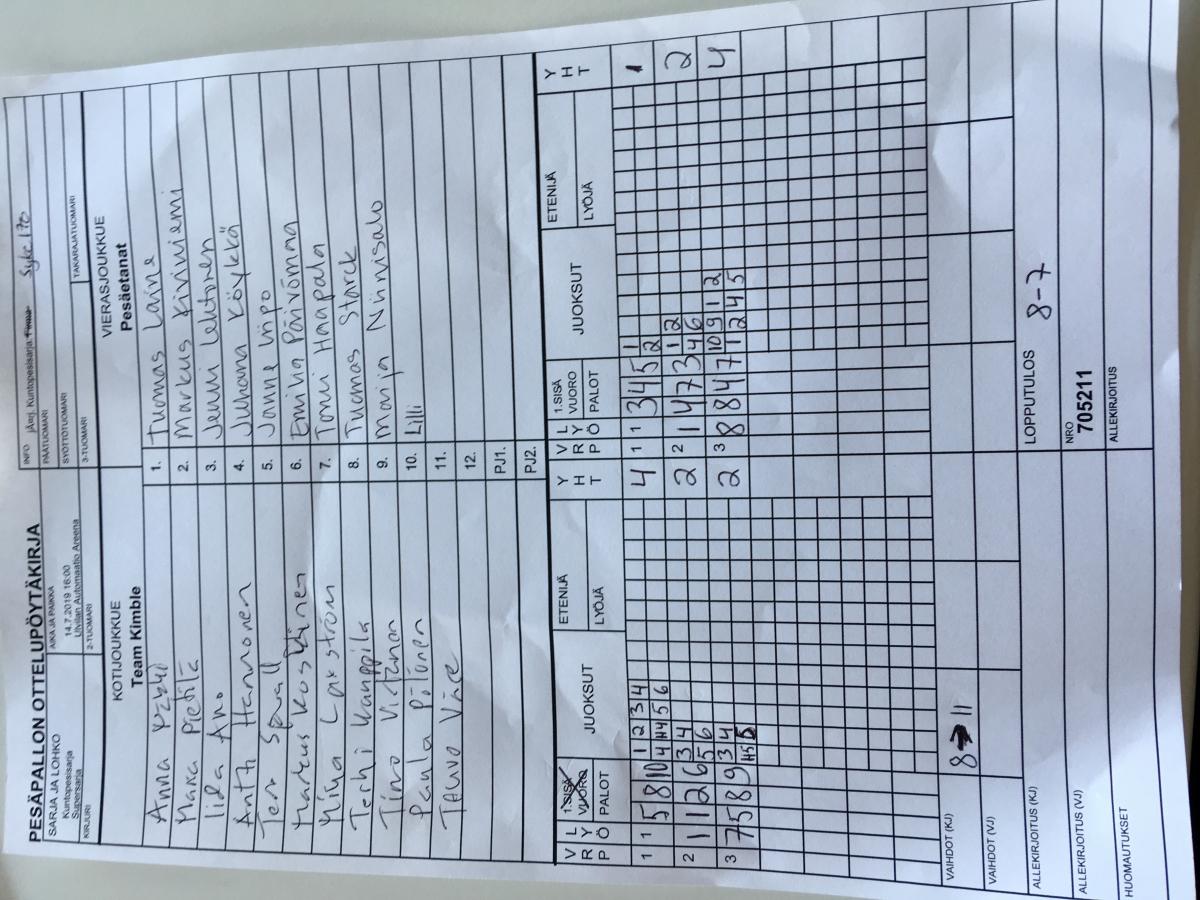 PESÄPALLON OTTELUPÖYTÄKIRJA
SARJA JA LOHKO
Kuntopesisarja
Supersarja
AIKA JA PAIKKA
14.7.2019 16:00
Ulvilan Automaatio Areena
INFO jÄarj. Kuntopesisarja
PÄÄTUOMARI
SYÖTTÖTUOMARI
KIRJURI
2-TUOMARI
3-TUOMARI
TAKARAJATUOMARI
KOTIJOUKKUE
Team Kimble
VIERASJOUKKUE
Pesäetanat
Anna
1. Tuomas Laine
Marka Pietilä
2. Markus Kiviniemi
Iida Arho
3. Jenni Lehtonen
Antti Hannonen
4. Juhana Köykkä
5. Janne
Markus Koskinen
6. Emilia Päivörinna
Miina
7. Tomi Haapala
Terhi Kauppila
8. Tuomas Starck
Timo Virtanen
9. Marija Niinisalo
Paula Pölönen
10. Lilli
Tauvo Väre
11.
12.
PJ1.
PJ2.
V R P
L Y Ö
1.SISÄ VUORO
PALOT
JUOKSUT
ETENIJÄ
LYÖJÄ
Y H T
V R P
L Y Ö
1.SISÄ VUORO
PALOT
JUOKSUT
ETENIJÄ
LYÖJÄ
Y H T
1 1 5 8 10 1 2 3 4 4
4 H4 5 6
1 1 3 4 5 1 1
2
2 1 1 2 6 3 4 2
5 6
2 1 4 7 3 1 2 2
4 6
3 7 5 8 9 3 4 2
H5 5
3 8 8 4 7 10 9 1 2 4
1 2 4 5
VAIHDOT (KJ) 8→11
VAIHDOT (VJ)
ALLEKIRJOITUS (KJ)
LOPPUTULOS 8-7
ALLEKIRJOITUS (VJ)
NRO
705211
HUOMAUTUKSET
ALLEKIRJOITUS